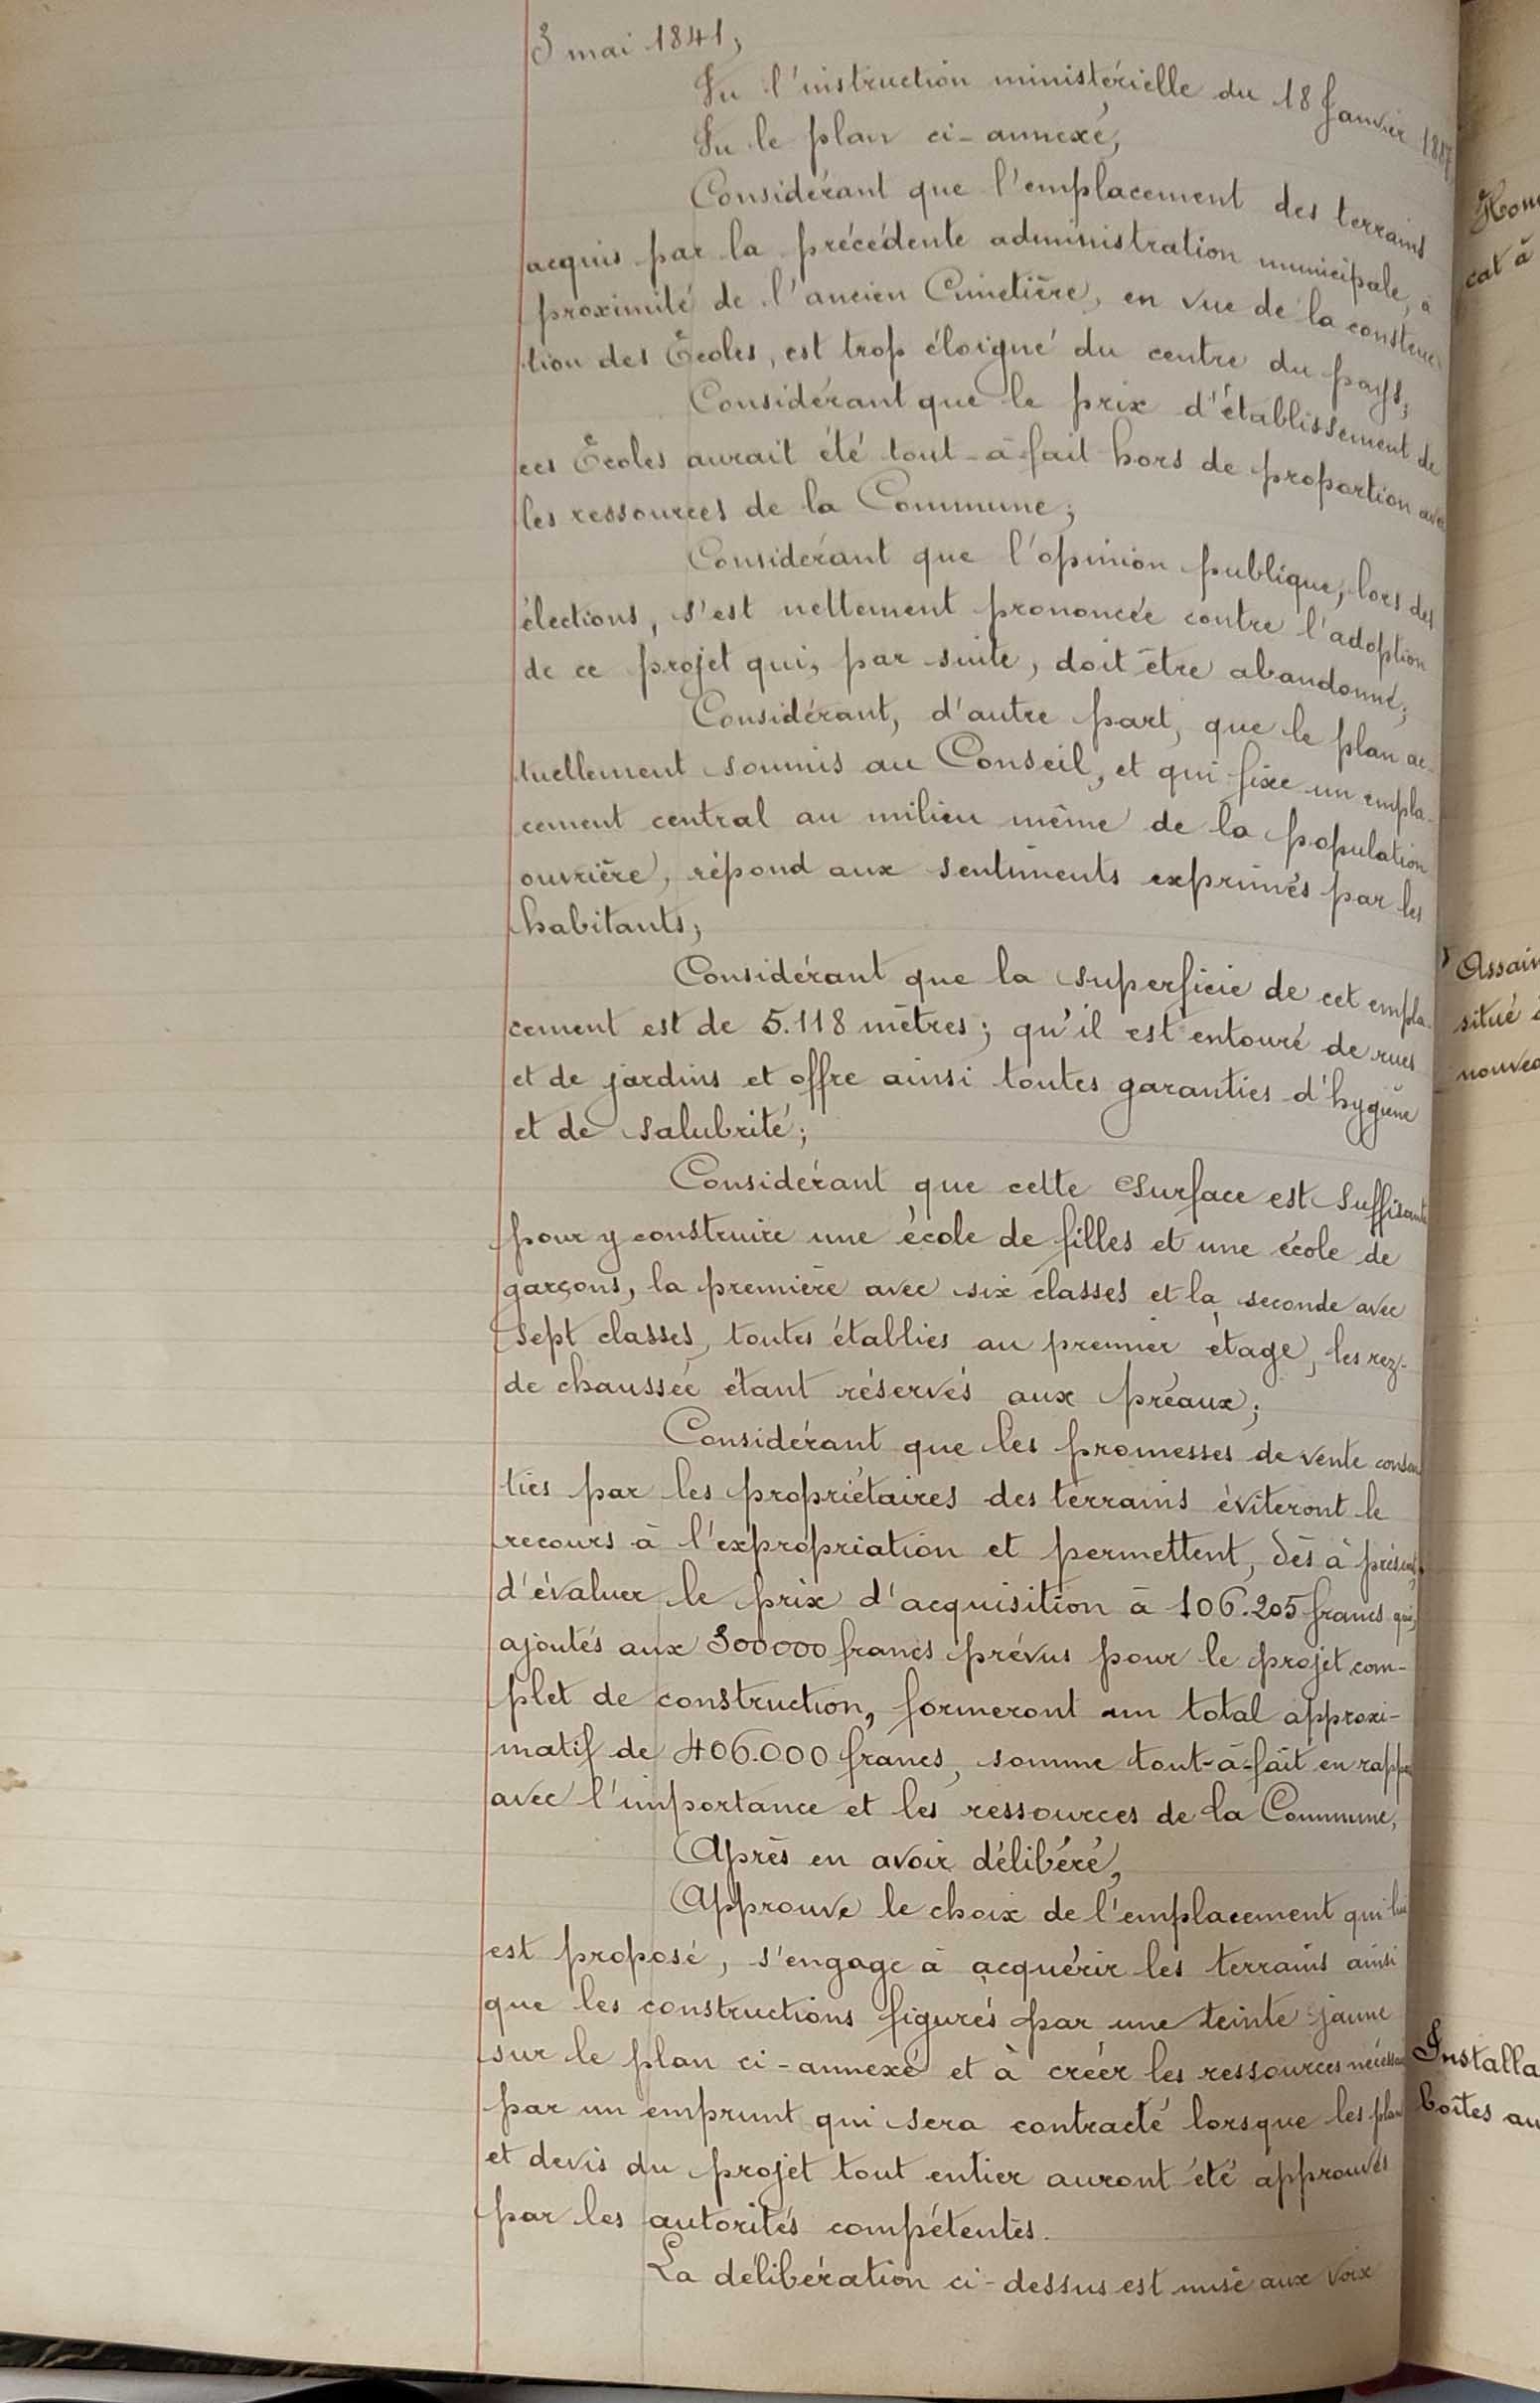 3 mai 1841;
Vu l'instruction ministérielle du 18 Janvier
Vu le plan ci-annexé,
Considérant que l'emplacement des terrains
acquis par la précédente administration municipale, à
proximité de l'ancien Cimetière, en vue de la construc
tion des Écoles, est trop éloigné du centre du pays;
Considérant que le prix d'établissement de
ces Écoles aurait été tout-à-fait hors de proportion avec
les ressources de la Commune;
Considérant que l'opinion publique, lors des
élections, s'est nettement prononcée contre l'adoption
de ce projet qui, par suite, doit être abandonné;
Considérant, d'autre part, que le plan ac-
tuellement soumis au Conseil, et qui fixe un empla-
cement central au milieu même de la population
ouvrière, répond aux sentiments exprimés par les
habitants;
Considérant que la superficie de cet empla-
cement est de 5.118 mètres; qu'il est entouré de rues
et de jardins et offre ainsi toutes garanties d'hygiène
et de salubrité;
Considérant que cette surface est suffisante
pour y construire une école de filles et une école de
garçons, la première avec six classes et la seconde avec
sept classes, toutes établies au premier étage, les rez-
de chaussée étant réservés aux préaux;
Considérant que les promesses de vente consen
ties par les propriétaires des terrains éviteront le
recours à l'expropriation et permettent, dès à présent,
d'évaluer le prix d'acquisition à 106.205 francs qui,
ajoutés aux 300000 francs prévus pour le projet com-
plet de construction, formeront un total approxi-
matif de 406.000 francs, somme tout-à-fait en rappo
avec l'importance et les ressources de la Commune,
Après en avoir délibéré,
Approuve le choix de l'emplacement qui lui
est proposé, s'engage à acquérir les terrains ainsi
que les constructions figurés par une teinte jaune
sur le plan ci-annexé et à créer les ressources nécessai
par un emprunt qui sera contracté lorsque les plans
et devis du projet tout entier auront été approuvés
par les autorités compétentes.
La délibération ci-dessus est mise aux voix
cat à
Assain
situé
nouvea
Installa
boîtes au